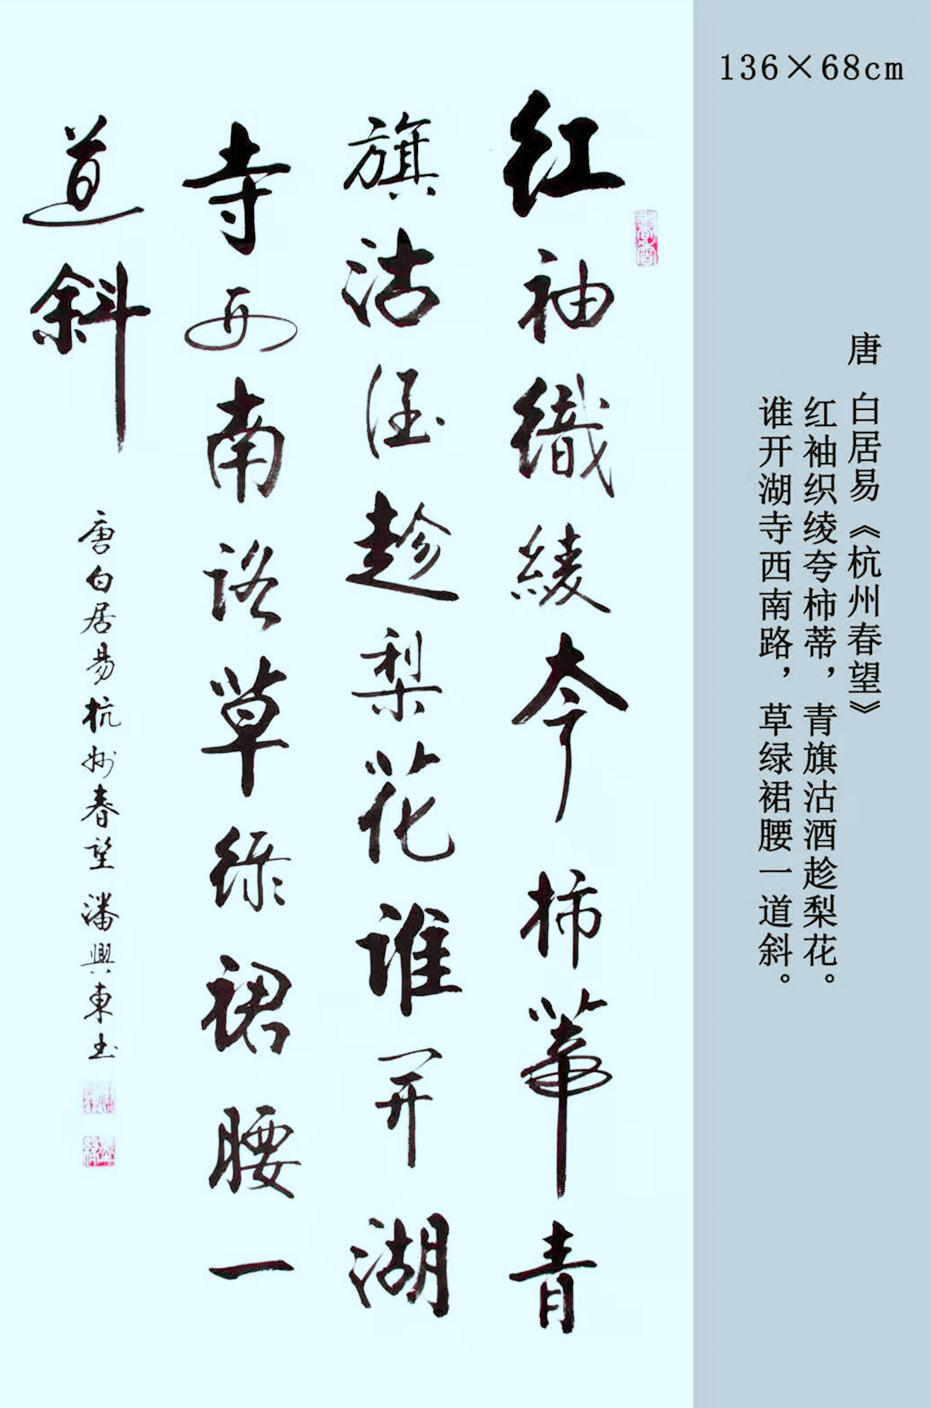 136×68cm
唐 白居易《杭州春望》
红袖织绫夸柿蒂，青旗沽酒趁梨花。
谁开湖寺西南路，草绿裙腰一道斜。
红袖織綾夸柿蒂青
旗沽酒趁梨花谁开湖
寺西南路草绿裙腰一
道斜
唐白居易杭州春望 潘興東书